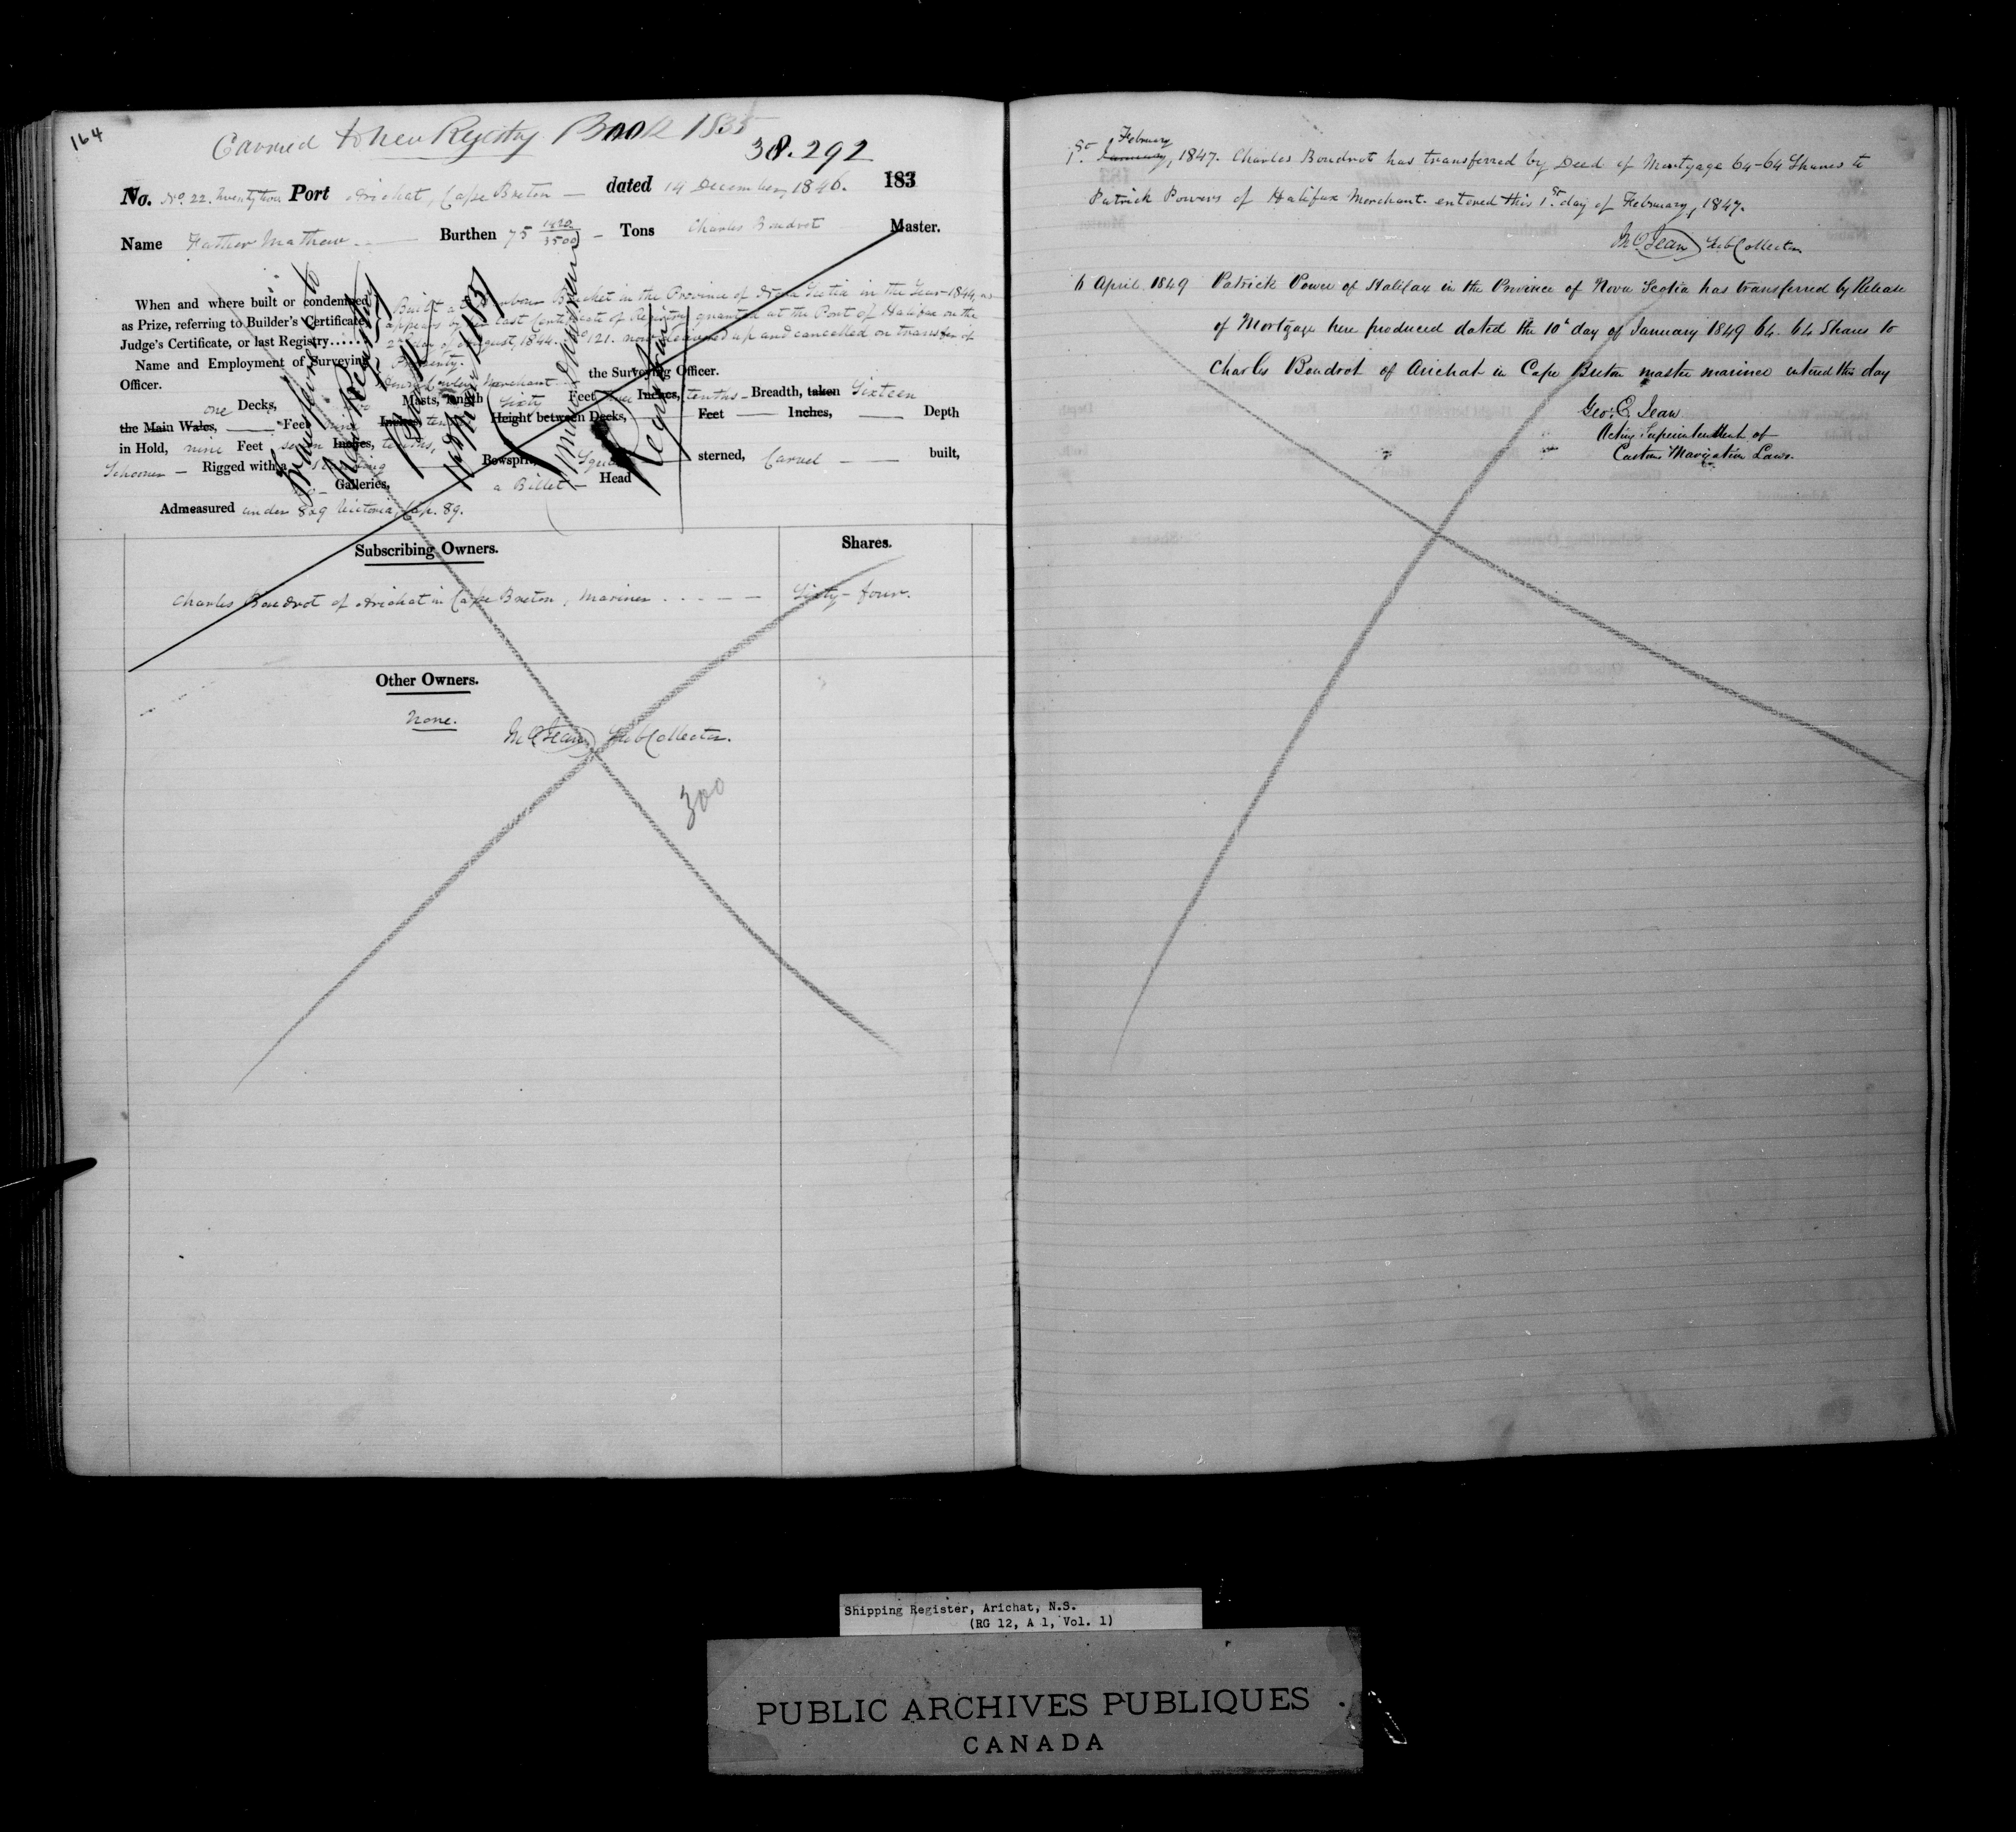 164
Carried to New Registry Book 1855
38.292
No. No. 22. Twenty two Port Arichat, Cape Breton — dated 14 December, 1846. 183
Name Father Mathew — Burthen 75 1420/3500 — Tons Charles Boudrot Master.
When and where built or condemned
as Prize, referring to Builder's Certificate
Judge's Certificate, or last Registry......
Built at Harbour Bouchet in the Province of Nova Scotia in the Year 1844, as
appears by the last Certificate of Registry granted at the Port of Halifax on the
2nd day of August, 1844. No 121. now delivered up and cancelled on transfer of
Property.
Name and Employment of Surveying
Officer.
Merchant the Surveying Officer.
one Decks, two Masts, length Sixty Feet Inches, tenths — Breadth, taken Sixteen
the Main Wales, — Feet nine Inches, tenths Height between Decks, — Feet — Inches, — Depth
in Hold, nine Feet seven Inches, tenths,
Schooner — Rigged with a Standing Bowsprit, Square sterned, Carvel — built,
no Galleries, a Billet — Head
Admeasured under 8&9 Victoria, Cap. 89.
Transferred to
New Registry
Book
1855
Registrar
Subscribing Owners. Shares.
Charles Boudrot of Arichat in Cape Breton, Mariner . . . — — Sixty-four.
Other Owners.
None.
SubCollector.
300
1st February January, 1847. Charles Boudrot has transferred by Deed of Mortgage 64-64 Shares to
Patrick Powers of Halifax Merchant. entered this 1st day of February, 1847.
SubCollector
6 April 1849 Patrick Power of Halifax in the Province of Nova Scotia has transferred by Release
of Mortgage here produced dated the 10th day of January 1849 64. 64 Shares to
Charles Boudrot of Arichat in Cape Breton master mariner entered this day
Geo. C. Jean
Acting Superintendent of
Custom Navigation Laws.
Shipping Register, Arichat, N.S.
(RG 12, A 1, Vol. 1)
PUBLIC ARCHIVES PUBLIQUES
CANADA